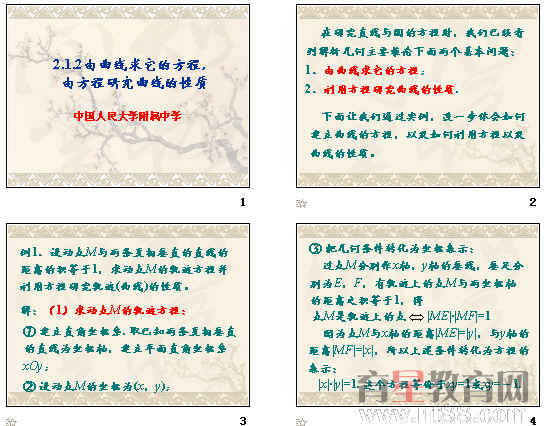 2.1.2由曲线求它的方程,
由方程研究曲线的性质
中国人民大学附属中学
1
在研究直线与圆的方程时,我们已经看
到解析几何主要讨论下面两个基本问题:
1.由曲线求它的方程;
2.利用方程研究曲线的性质.
下面让我们通过实例,进一步体会如何
建立曲线的方程,以及如何利用方程以及
曲线的性质。
2
例1.设动点M与两条互相垂直的直线的
距离的积等于1,求动点M的轨迹方程并
利用方程研究轨迹(曲线)的性质。
解:(1)求动点M的轨迹方程:
①建立直角坐标系.取已知两条互相垂直
的直线为坐标轴,建立平面直角坐标系
xOy;
②设动点M的坐标为(x, y);
3
③把几何条件转化为坐标表示:
过点M分别作x轴,y轴的垂线,垂足分
别为E,F,有轨迹上的点M与两坐标轴
的距离之积等于1,得
点M是轨迹上的点⇔|ME|·|MF|=1
因为点M与x轴的距离|ME|=|y|,与y轴的
距离|MF|=|x|,所以上述条件转化为方程的
表示:
|x|·|y|=1.这个方程等价于xy=1或xy=-1.
4
育星教育网
www.ht88.com